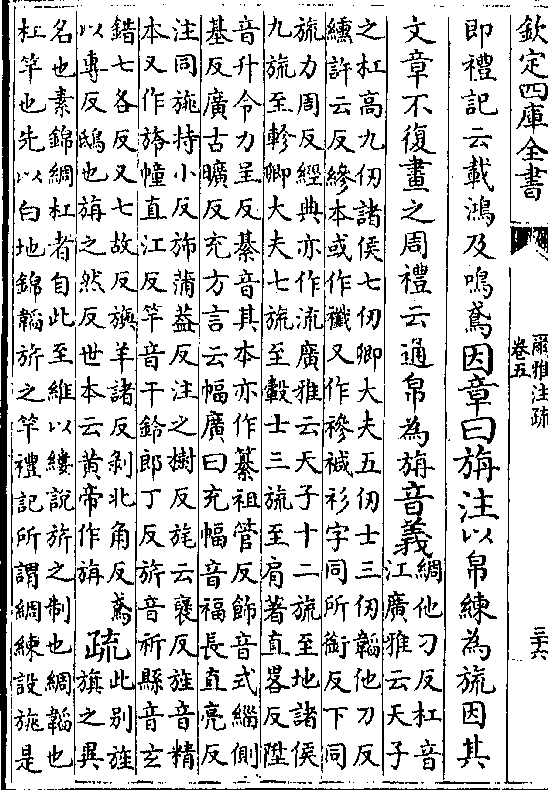 欽定四庫全書
爾雅注疏
卷五
三六
即禮記云載鴻及鳴鳶因章曰旃注以帛練為旒因其
文章不復畫之周禮云通帛為旃音義
綢他刀反杠音
江廣雅云天子
之杠高九仞諸侯七仞卿大夫五仞士三仞韜他刀反
纁許云反縿本或作襳又作襂祴衫字同所銜反下同
旒力周反經典亦作流廣雅云天子十二旒至地諸侯
九旒至軫卿大夫七旒至轂士三旒至肩著直畧反陞
音升令力呈反綦音其本亦作纂祖管反飾音式緇側
基反廣古曠反充方言云幅廣曰充幅音福長直亮反
注同旐持小反斾蒲葢反注之樹反旄云襃反旌音精
本又作㫌幢直江反竿音干鈴郎丁反旂音祈縣音玄
錯七各反又七故反旟羊諸反剝北角反鳶
以専反鴟也旃之然反世本云黃帝作旃
疏
此别旌
旗之異
名也素錦綢杠者自此至維以縷說旂之制也綢韜也
杠竿也先以白地錦韜旂之竿禮記所謂綢練設旐是